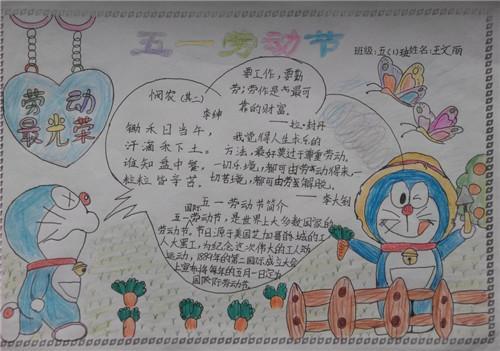 五一劳动节
班级:五(1)班姓名:王文丽
劳动
最光荣
悯农(其二)
李绅
锄禾日当午,
汗滴禾下土。
谁知盘中餐,
粒粒皆辛苦。
要工作,要勤
劳:劳作是最可
靠的财富。
——拉·封丹
我觉得人生求乐的
方法,最好莫过于尊重劳动。
一切乐境,都可由劳动得来,
一切苦境,都可由劳动解脱。
——李大钊
国际五一劳动节简介
五一劳动节,是世界上大多数国家的
劳动节。节日源于美国芝加哥的工
人大罢工,为纪念这次伟大的工人
运动,1889年的第二国际成立大会
上宣布将每年的五月一日定为
国际劳动节。